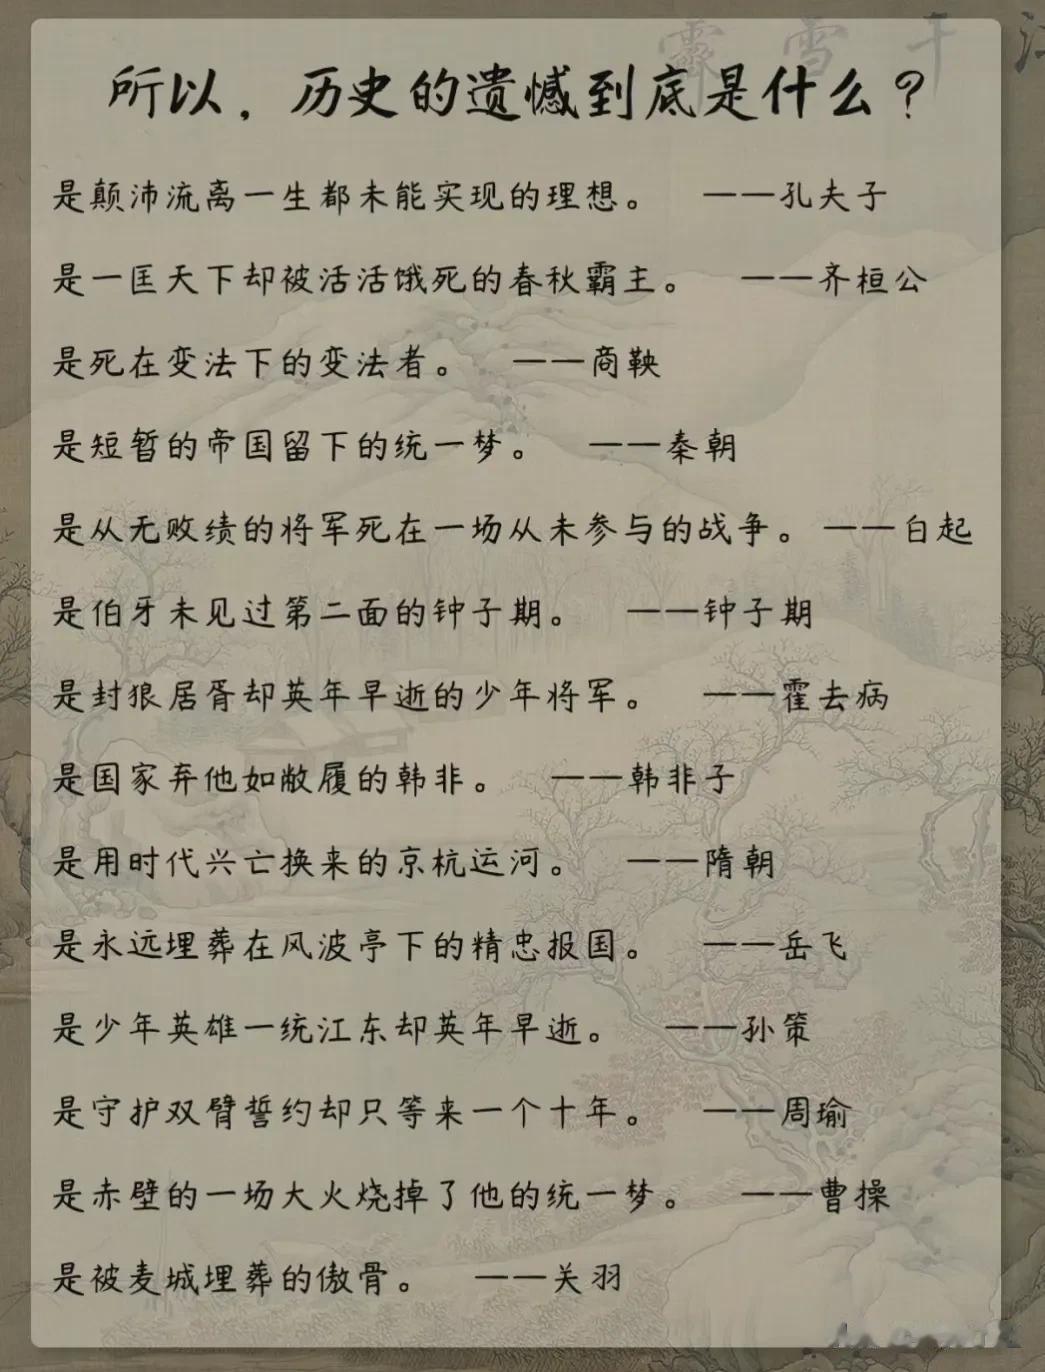 霁雪千江
所以，历史的遗憾到底是什么？
是颠沛流离一生都未能实现的理想。 ——孔夫子
是一匡天下却被活活饿死的春秋霸主。 ——齐桓公
是死在变法下的变法者。 ——商鞅
是短暂的帝国留下的统一梦。 ——秦朝
是从无败绩的将军死在一场从未参与的战争。 ——白起
是伯牙未见过第二面的钟子期。 ——钟子期
是封狼居胥却英年早逝的少年将军。 ——霍去病
是国家弃他如敝履的韩非。 ——韩非子
是用时代兴亡换来的京杭运河。 ——隋朝
是永远埋葬在风波亭下的精忠报国。 ——岳飞
是少年英雄一统江东却英年早逝。 ——孙策
是守护双臂誓约却只等来一个十年。 ——周瑜
是赤壁的一场大火烧掉了他的统一梦。 ——曹操
是被麦城埋葬的傲骨。 ——关羽